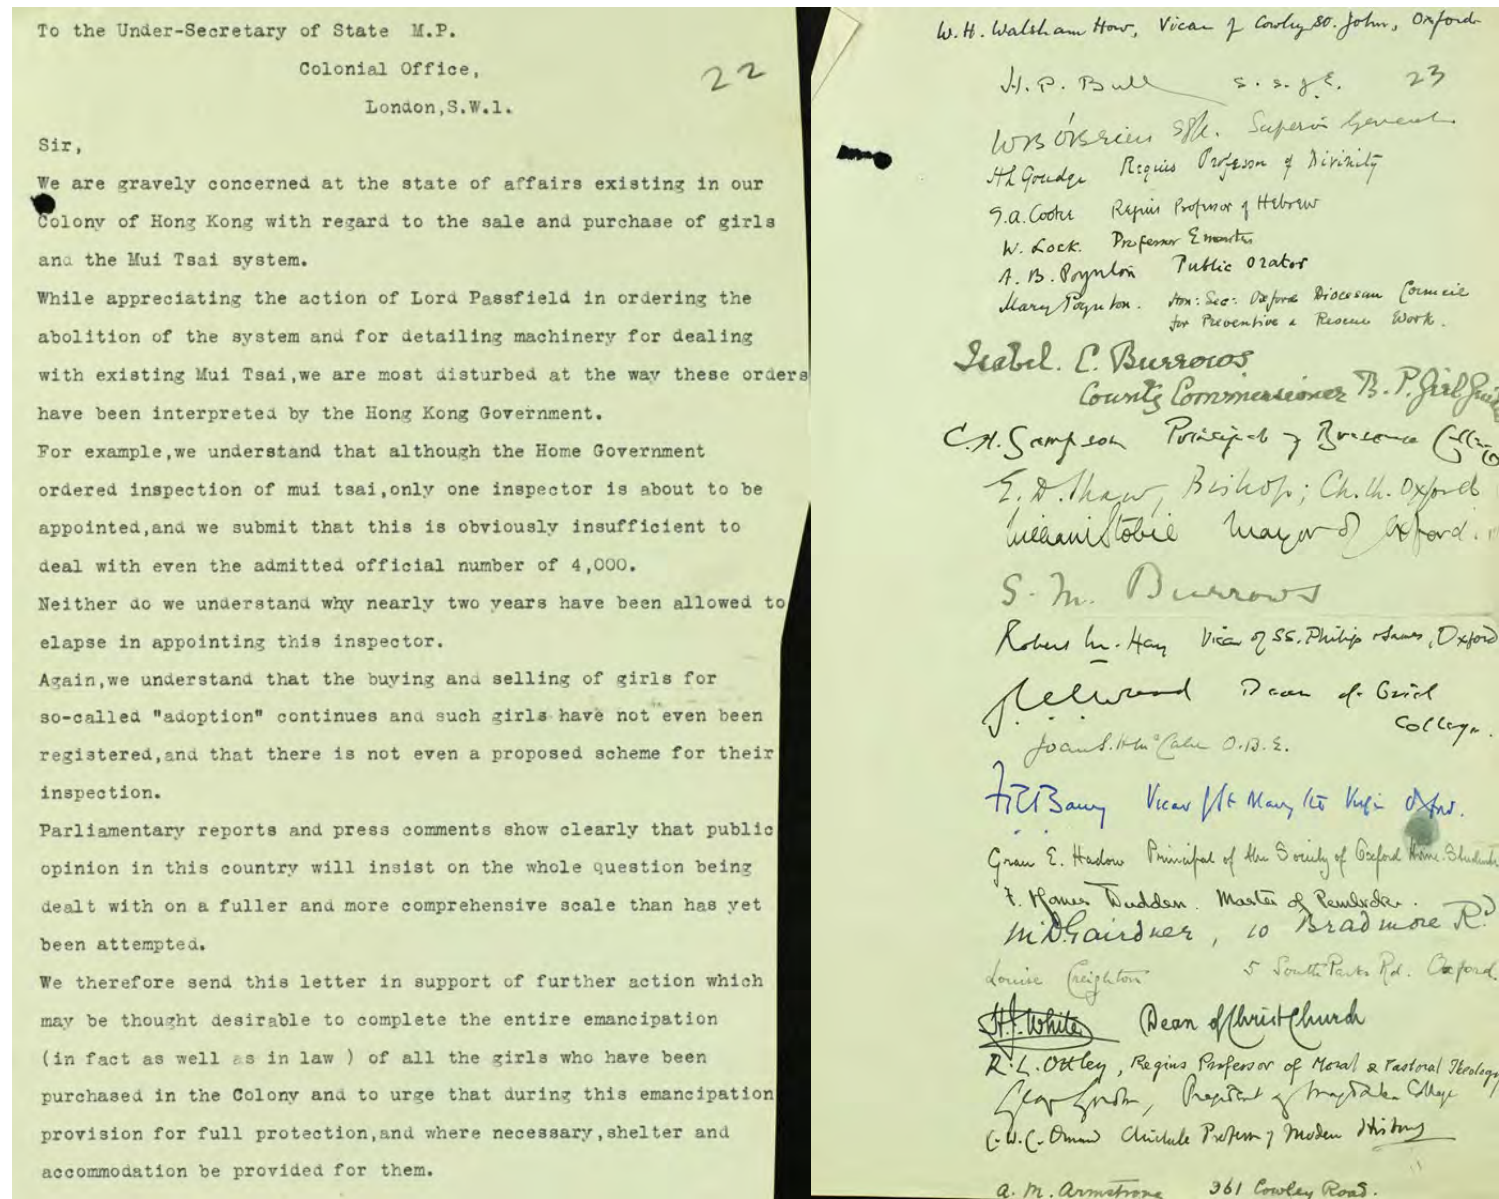 To the Under-Secretary of State M.P.
Colonial Office,
London,S.W.1.
22
Sir,
We are gravely concerned at the state of affairs existing in our
Colony of Hong Kong with regard to the sale and purchase of girls
and the Mui Tsai system.
While appreciating the action of Lord Passfield in ordering the
abolition of the system and for detailing machinery for dealing
with existing Mui Tsai,we are most disturbed at the way these orders
have been interpreted by the Hong Kong Government.
For example,we understand that although the Home Government
ordered inspection of mui tsai,only one inspector is about to be
appointed,and we submit that this is obviously insufficient to
deal with even the admitted official number of 4,000.
Neither do we understand why nearly two years have been allowed to
elapse in appointing this inspector.
Again,we understand that the buying and selling of girls for
so-called "adoption" continues and such girls have not even been
registered,and that there is not even a proposed scheme for their
inspection.
Parliamentary reports and press comments show clearly that public
opinion in this country will insist on the whole question being
dealt with on a fuller and more comprehensive scale than has yet
been attempted.
We therefore send this letter in support of further action which
may be thought desirable to complete the entire emancipation
(in fact as well as in law ) of all the girls who have been
purchased in the Colony and to urge that during this emancipation
provision for full protection,and where necessary,shelter and
accommodation be provided for them.
W.H. Walsham How, Vicar of Cowley St. John, Oxford
H.P. Bull S.S.J.E. 23
W B O'Brien SSJE. Superior General
H L Goudge Regius Professor of Divinity
G.A. Cooke Regius Professor of Hebrew
W. Lock. Professor Emeritus
A. B. Poynton Public Orator
Mary Poynton. Hon: Sec: Oxford Diocesan Council
for Preventive & Rescue Work.
Isabel. C. Burrows
County Commissioner B. P. Girl Guides
C.H. Sampson Principal of Brasenose College
E.D. Shaw, Bishop; Ch. Ch. Oxford
William Stobie Mayor of Oxford.
S. M. Burrows
Robert M. Hay Vicar of SS. Philip & James, Oxford
Dean of Oriel
College.
O.B.E.
Barry Vicar of St Mary the Virgin Oxford.
Grace E. Hadow Principal of the Society of Oxford Home-Students
F. Homes Dudden. Master of Pembroke.
M. D. Gairdner, 10 Bradmore Rd
Louise Creighton 5 South Parks Rd. Oxford.
H.J. White Dean of Christ Church
R. L. Ottley, Regius Professor of Moral & Pastoral Theology
George Gordon, President of Magdalen College
C.W.C. Oman Chichele Professor of Modern History
A. M. Armstrong 361 Cowley Road.